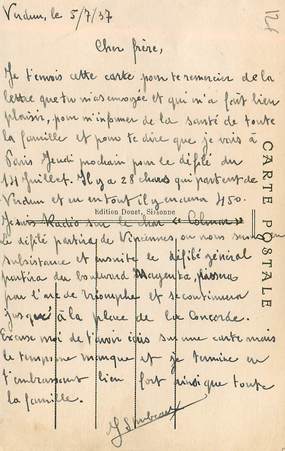 Verdun, le 5/7/37
Cher frère,
Je t'envois cette carte pour te remercier de la
lettre que tu m'as envoyée et qui m'a fait bien
plaisir, pour m'informer de la santé de toute
la famille et pour te dire que je vais à
Paris Jeudi prochain pour le défilé du
14 Juillet. Il y a 28 chars qui partent de
Verdun et en tout il y en aura 450.
Je suis Radio sur le char "Colmar"
Edition Douet, Sissonne
Le défilé partira de Vincennes ou nous serons en
subsistance et ensuite le défilé général
partira du boulevard Magenta, passera
par l'arc de triomphe et se continuera
jusqu'à la place de la Concorde.
Excuse moi de t'avoir écris sur une carte mais
le temps me manque et je termine en
t'embrassant bien fort ainsi que toute
la famille.
CARTE POSTALE